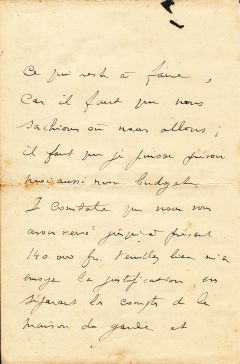 ce qui reste à faire,
Car il faut que nous
sachions où nous allons ;
il faut que je puisse prévoir
moi aussi mon budget.
Je constate que nous vous
avons versé jusqu'à présent
140.000 frs. Veuillez bien m'en
envoyer la justification, en
séparant les comptes de la
maison du garde et